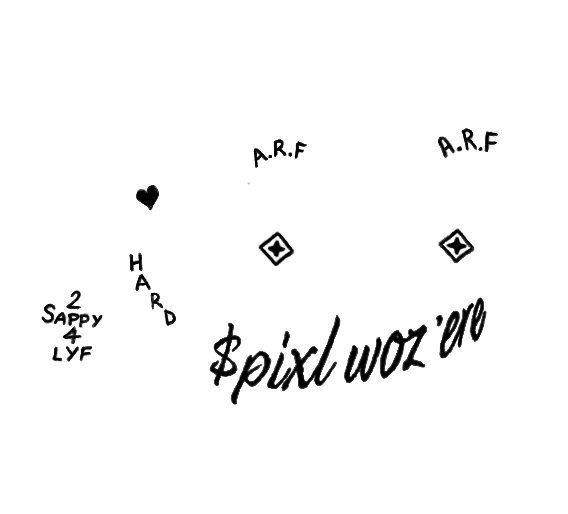 A.R.F
A.R.F
HARD
2
SAPPY
4
LYF
$pixl woz 'ere